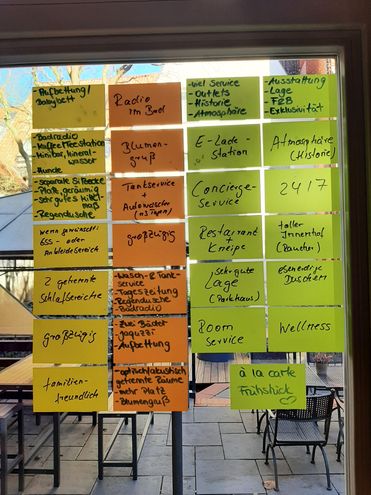 Aufbettung/
Babybett
- Badradio
- Kaffee/Teestation
- Minibar, Mineral-
wasser
- Hunde
- separate Sitzecke
- Platz, geräumig
- sehr gutes
Regendusche
wenn gewünscht:
Ess- oder
Ankleidebereich
2 getrennte
Schlafbereiche
großzügig
familien-
freundlich
Radio
im Bad
Blumen-
gruß
Tankservice
+
Autowäsche
großzügig
- Wasch- & Tank-
service
- Tageszeitung
- Regendusche
- Badradio
- zwei Bäder
- Jaguzzi
- Aufbettung
- optisch/akustisch
getrennte Räume
- mehr Platz
- Blumengruß
- viel Service
- Outlets
- Historie
- Atmosphäre
E-Lade-
Station
Concierge-
Service
Restaurant
+
Kneipe
sehr gute
Lage
(Parkhaus)
Room
Service
à la carte
Frühstück
- Ausstattung
- Lage
- F&B
- Exklusivität
Atmosphäre
(Historie)
24/7
toller
Innenhof
ebenerdige
Duschen
Wellness